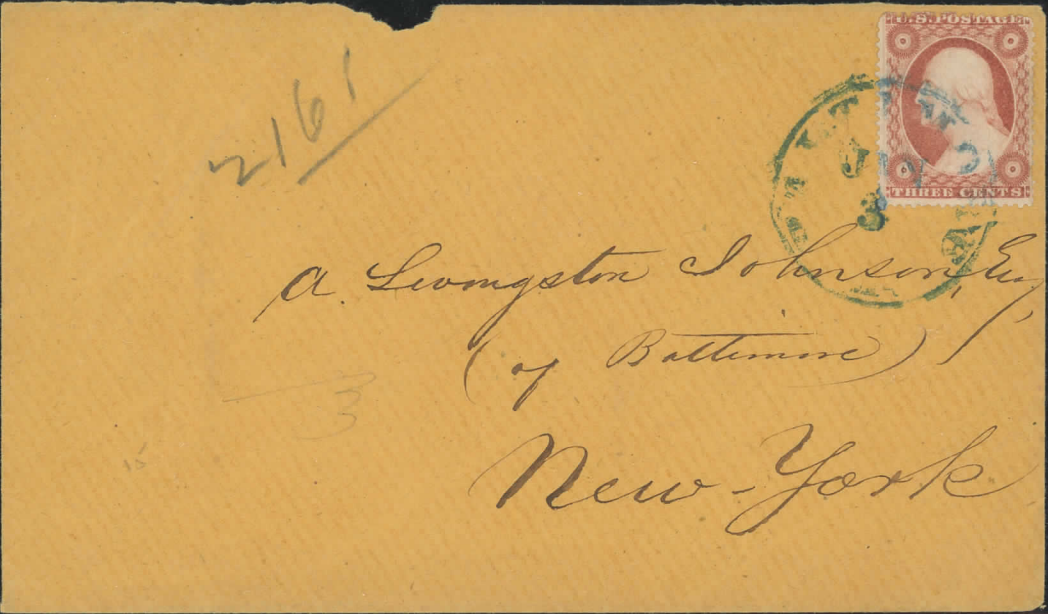 2161
U.S. POSTAGE
THREE CENTS
JAN
3
A. Livingston Johnson, Esq,
(of Baltimore)
3
New-York
15